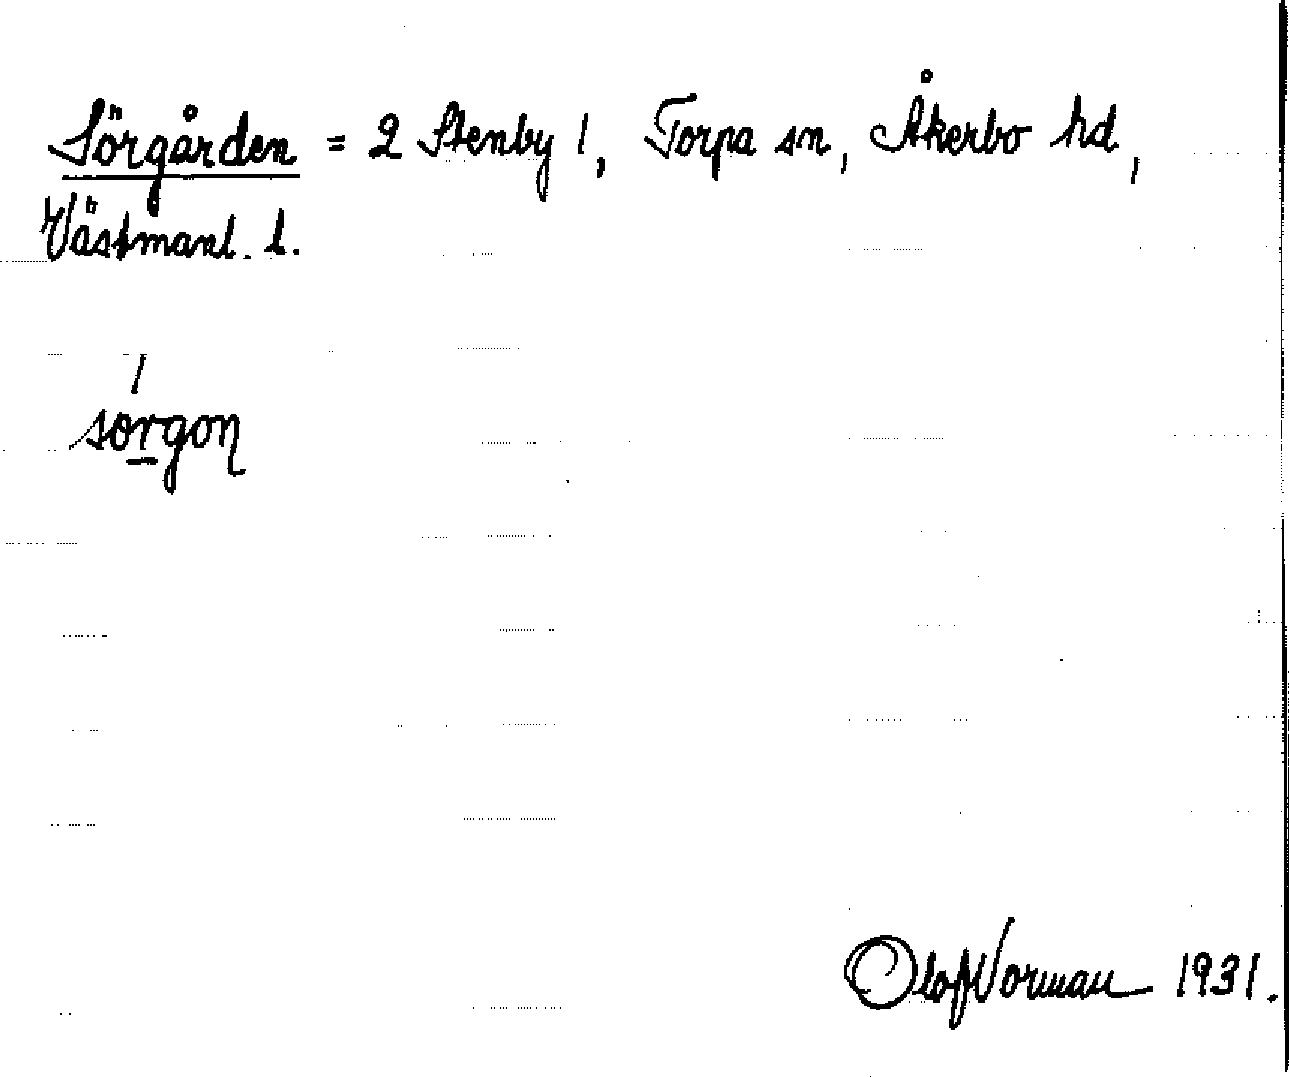 Sörgården = 2 Stenby 1, Torpa sn, Åkerbo hd,
Västmanl. l.
sörgon
Olof Norman 1931.